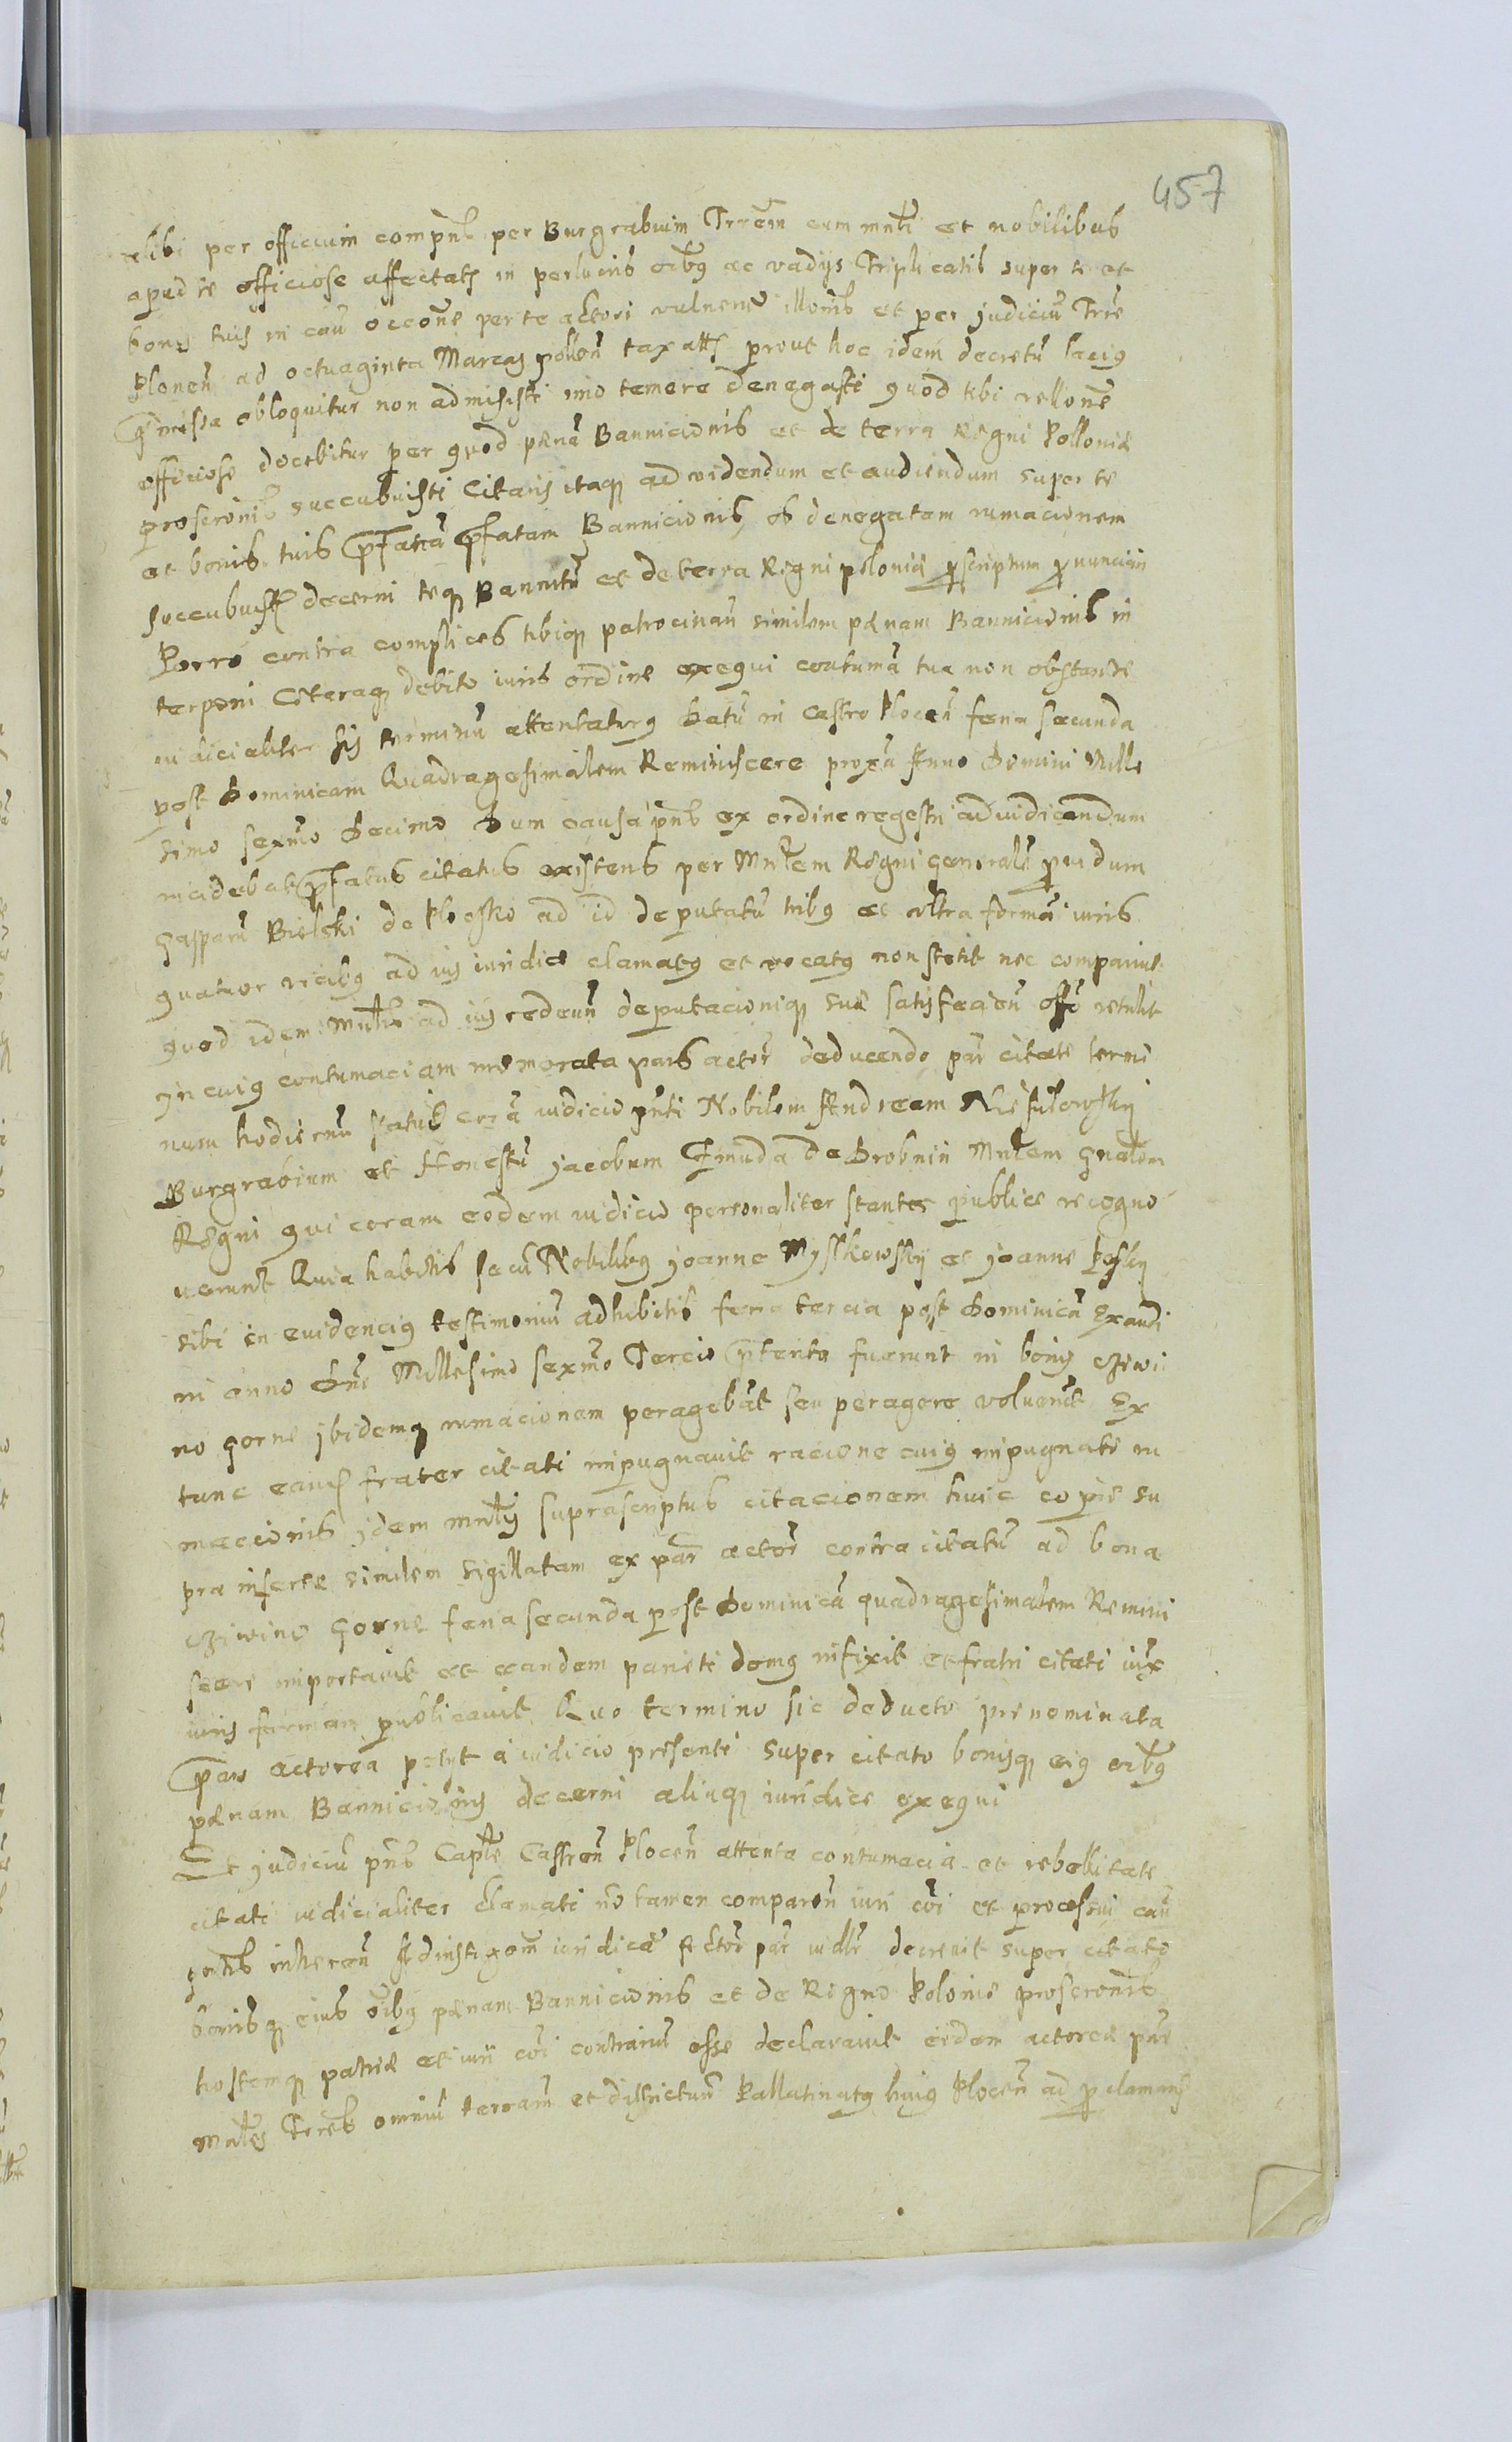 457
alibi per officium compnt per Burgrabium Trrem cum mntri et nobilibus
apud te officiose affectats in perlucris oibus ac vadijs Triplicatis super te et
bonis tuis in cau occone per te actori vulnerum illonis et per judiciu Trre
Plonen ad octuaginta Marcas pollon taxatis prout hoc idem decretu lacius
prmissa obloquitur non admisisti imo temere denegasti quod tibi rellone
officiose docebitur per quod penam Bannicionis et de terra Regni Pollonie
proscronis succubuisti Citaris itaq ad videndum et audiendum super te
et bonis tuis prfatam Bannicionis ob denegatam rumacionem
succubuisse decerni teq Bannitu et de terra Regni polonie proscriptum pronunciari
Porro contra complices tibiq patrocinan similem penam Bannicionis in
terponi Ceteraq debito iuris ordine exequi contuma tua non obstante
iudicialiter sis terminu attentaturus Datu in Castro Plocen feria secunda
post Dominicam Quadragesimalem Reminiscere proxa Anno Domini Mille
simo sexmo decimo Dum causa pns ex ordine regestri adiudicandum
incidebat prfatus citatus existens per Mntrem Regni generale prudum
Gasparu Bielski de Plocko ad id deputatu tribus ac ultra forma iuris
quatuor vicibus ad ius iuridice clamatus et vocatus non stetit nec comparuit
quod idem Mntris ad ius redeun deputacioniq sue satisfacien offo retulit
In cuius contumaciam memorata pars actor deducendo par citate termi
num hodiernu statuit cora iudicio pnti Nobilem Andream
Burgrabium et Honestu Jacobum Gmuda de Drobnin Mntrem gnalem
Regni qui coram eodem iudicio personaliter stantes publice recogno
uerunt Quia habitis secu Nobilibus Joanne Myslkowskij et Joanne Peskij
sibi in euidencius testimoniu adhibitis feria tercia post Dominica Exaudi
in anno Dni Millesimo sexmo Tercio prterito fuerunt in bonis Cziwi
no Gorne ibidemq rumacionem peragebat seu peragere voluerut Ex
tunc eanq frater citati impugnauit racione cuius impugnate ru
macionis idem mntris suprascriptus citacionem huic copie su
pra inserte similem sigillatam ex par actor contra citatu ad bona
Cziwino Gorne feria secunda post Dominica quadragesimalem Remini
scere importauit et eandem parieti domus infixit et fratri citati iux
iuris formam publicauit Quo termino sic deducto prenominata
pars actorea petyt a iudicio presente super citato bonisq eius oibus
penam Bannicionis decerni aliaq iuridice exequi
Et judiciu pns Caplе Castren Plocen attenta contumacia et rebellitate
citati iudicialiter clamati no tamen comparen iuri coi et processui cau
inheren Ad instigom iuridica Actor par decreuit super citato
bonisq eius oibus penam Bannicionis et de Regno Polonie proscronis
hostemq patrie et iuri coi contrariu esse declarauit eidem actoree par
Mntres Trres omniu terraru et districtuu Pallatinatus huius Plocen ad proclamans